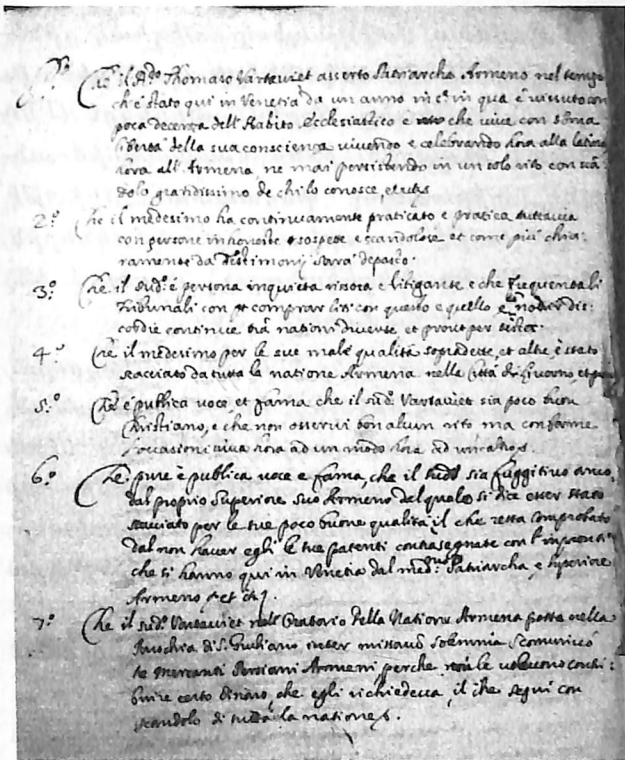 P.º Che il R.do Thomaso Vartaviet asserto Patriarcha Armeno nel tempo
ch'è stato qui in Venetia da un anno in c.a in qua è vissuto con
poca decenza dell'habito Ecclesiastico e che vive con
libertà della sua conscienza vivendo e celebrando hora alla latina
hora all'Armena, ne mai persistendo in un solo rito con scan
dolo grandissimo de chi lo conosce
2.º Che il medesimo ha continuamente praticato e pratica tuttavia
con persone inhoneste sospette e scandolose et come più chia
ramente da Testimonij sarà deposto.
3.º Che il sud.º è persona inquieta rissosa e litigante e che frequenta li
Tribunali con comprar liti con questo e quello dis
cordie continue trà nationi diverse et
4.º Che il medesimo per le sue male qualità sopradette, et altre è stato
scacciato da tutta la natione Armena nelle Città di Livorno et
5.º Che è publica voce et fama che il sud.º Vartaviet sia poco buon
Christiano, e che non osservi alcun rito ma conforme
l'occasioni viva hora ad un modo hora ad un altro
6.º Che pure è publica voce e fama, che il sud.º sia fuggitivo anco
dal proprio Superiore suo Armeno del quale si dice esser stato
scacciato per le sue poco buone qualità il che resta comprobato
dal non haver egli le sue patenti contrasegnate con l'impronti
che si hanno qui in Venetia dal med.mo Patriarcha e superiore
Armeno
7.º Che il sud.º Vartaviet nell'Oratorio della Natione Armena posto nella
Parochia di S. Giuliano inter missarum solemnia scomunicò
li Mercanti Persiani Armeni perche non le volevono contri
buire certo dinaro, che egli richiedeva, il che seguì con
scandolo di tutta la natione